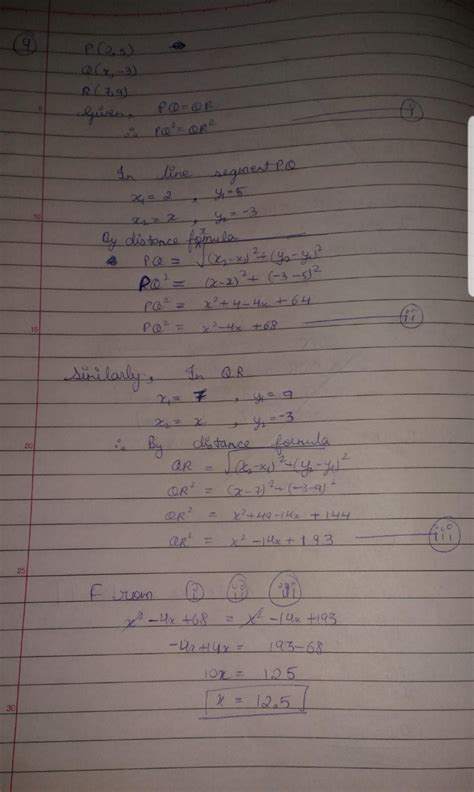 9
P(2,5)
Q(x,-3)
R(7,9)
Given, PQ=QR
∴ PQ²=QR² i
In line segment PQ
x₁=2 , y₁=5
x₂=x , y₂=-3
By distance formula
PQ = √(x₂-x₁)²+(y₂-y₁)²
PQ² = (x-2)²+(-3-5)²
PQ² = x²+4-4x+64
PQ² = x²-4x+68 ii
Similarly, In QR
x₁= 7 , y₁=9
x₂= x , y₂=-3
∴ By distance formula
QR = √(x₂-x₁)²+(y₂-y₁)²
QR² = (x-7)²+(-3-9)²
QR² = x²+49-14x+144
QR² = x²-14x+193 iii
From i ii iii
x²-4x+68 = x²-14x+193
-4x+14x = 193-68
10x = 125
x = 12.5
5
10
15
20
25
30